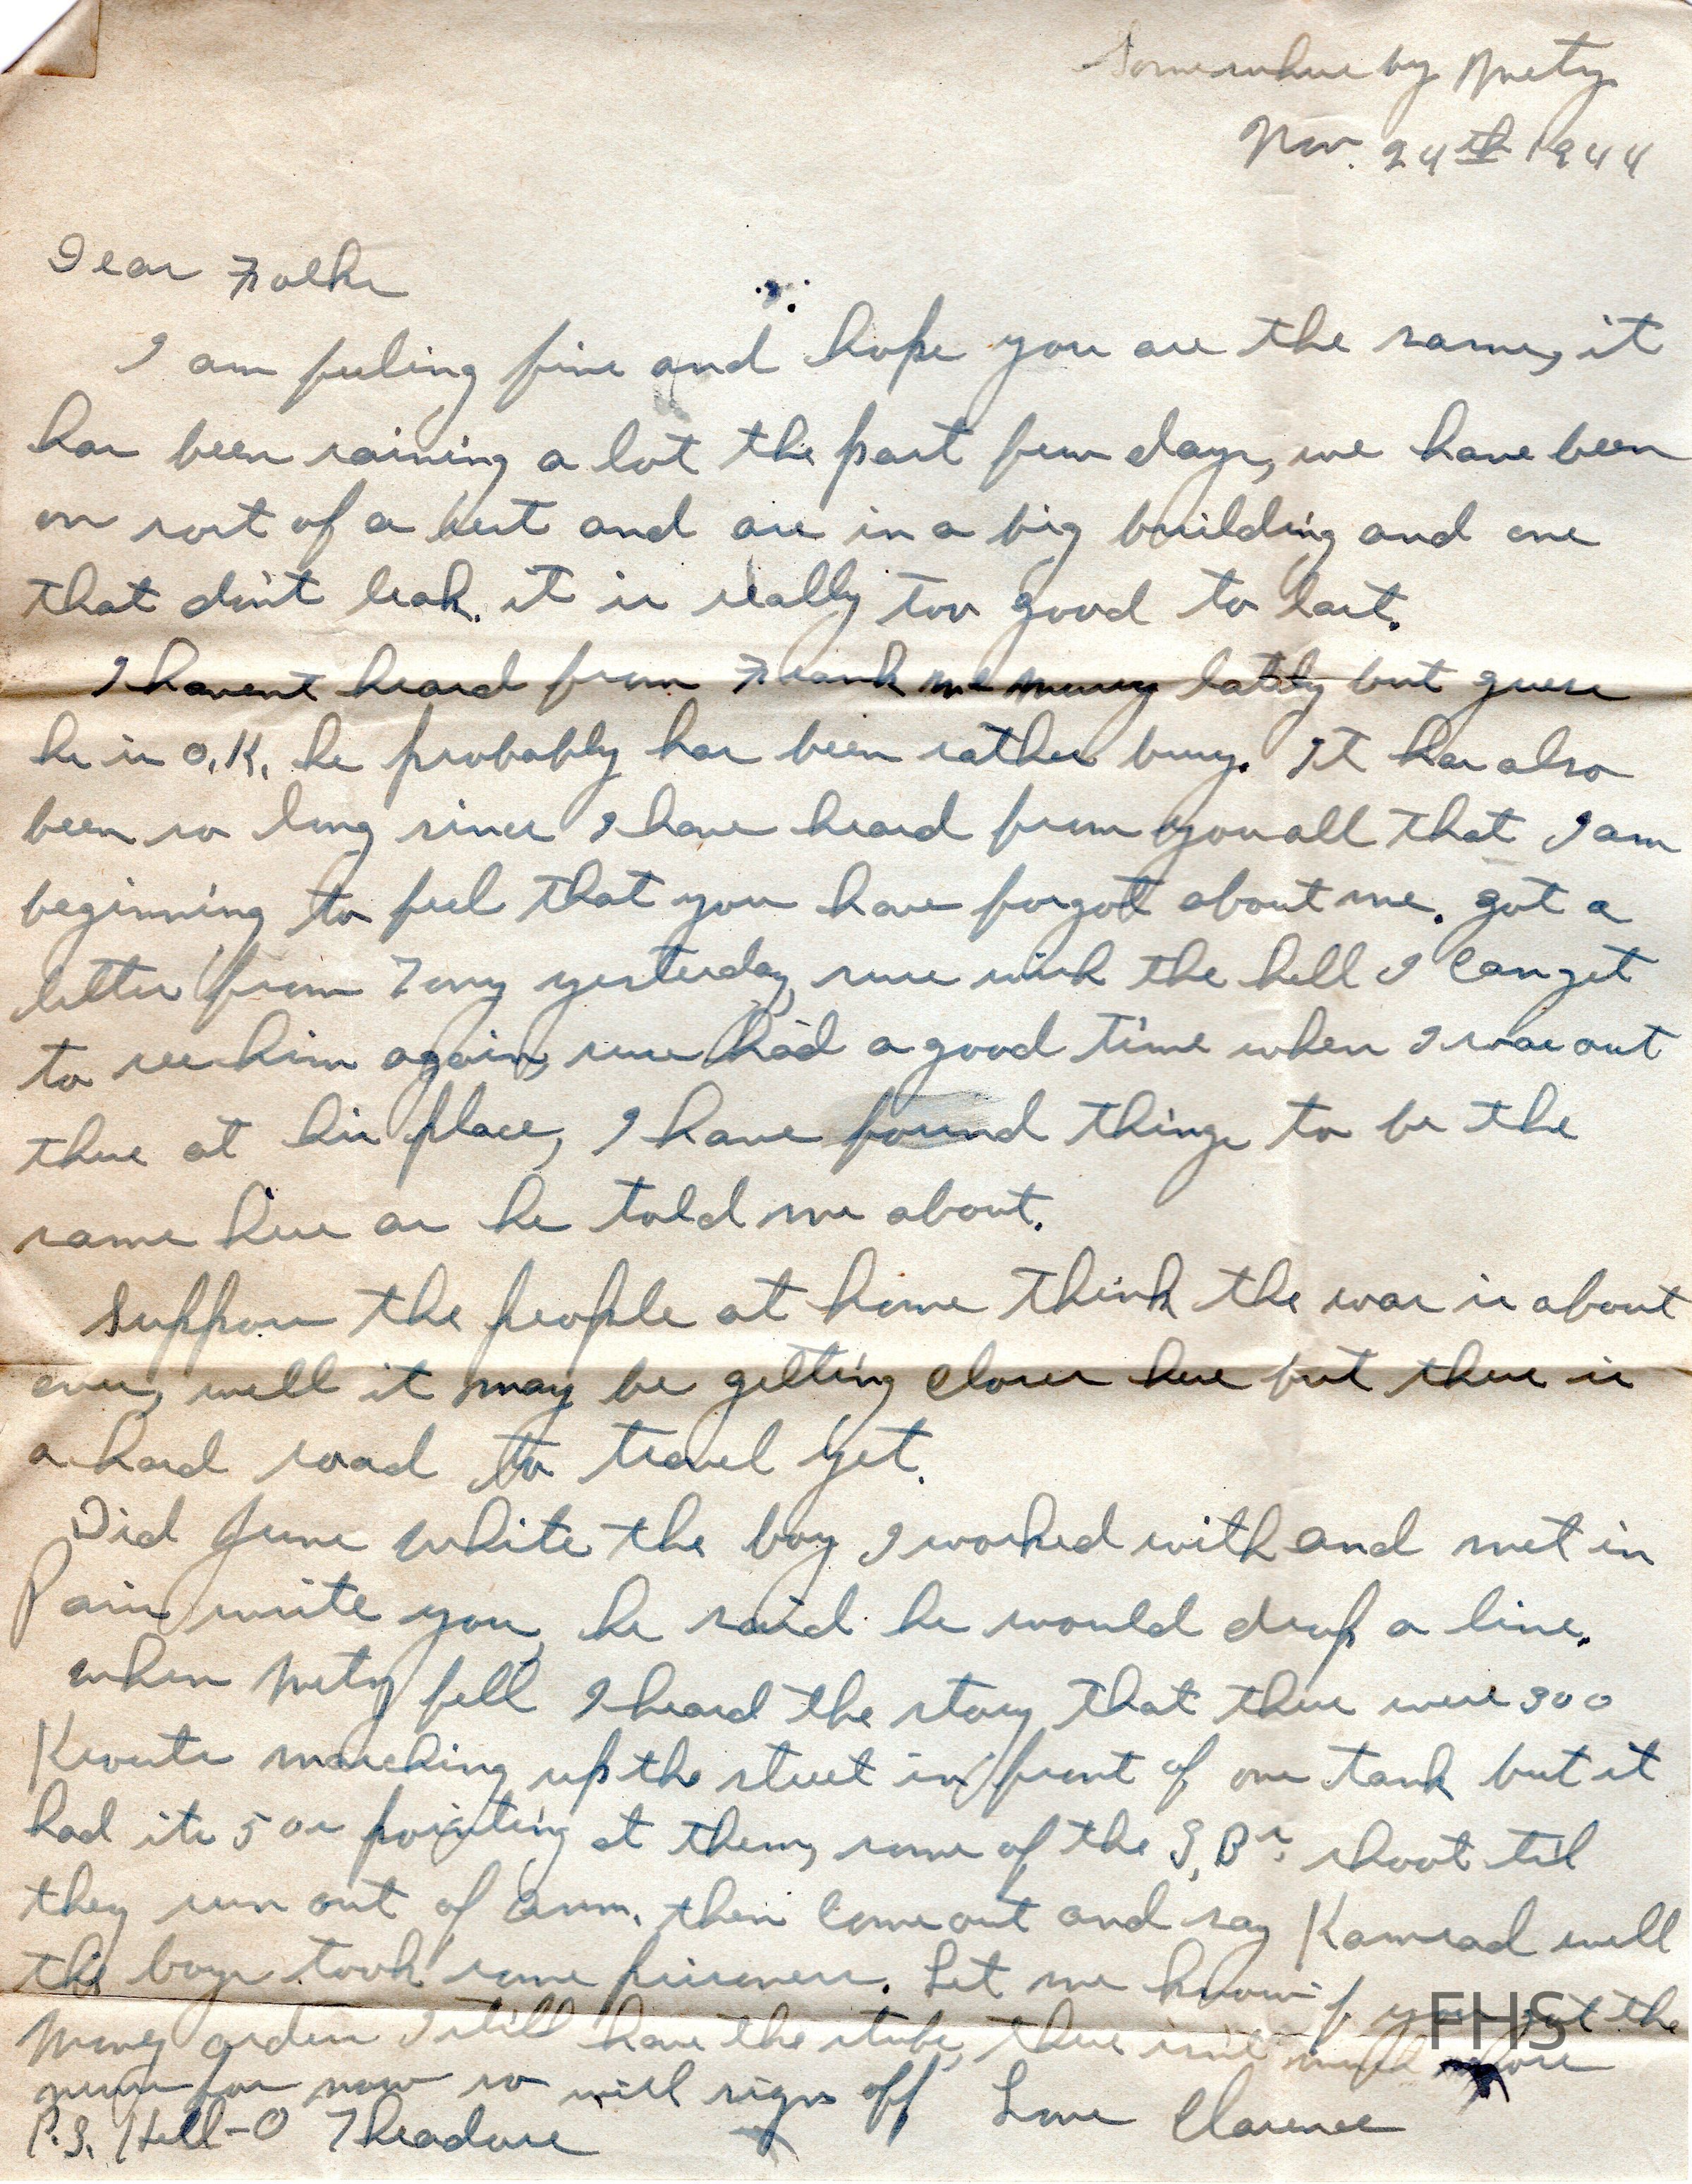 Somewhere by Metz
Nov. 24th 1944
Dear Folks
I am feeling fine and hope you are the same, it
has been raining a lot the past few days, we have been
on sort of a rest and are in a big building and one
that don't leak. it is really too good to last.
I havent heard from Frank lately but guess
he is O.K. he probably has been rather busy. It has also
been so long since I have heard from you all that I am
beginning to feel that you have forgot about me. got a
letter from Tony yesterday, sure wish the hell I can get
to see him again, sure had a good time when I was out
there at his place, I have found things to be the
same here as he told me about.
Suppose the people at home think the war is about
over, well it may be getting closer here but there is
a hard road to travel yet.
Did June White the boy I worked with and met in
Paris write you, he said he would drop a line.
when Metz fell I heard the story that there were 300
Krouts marching up the street in front of one tank but it
had its 50s pointing at them, some of the S.B's. shoot til
they run out of amm. then come out and say Kamrad well
the boys took some prisoners. Let me know if you got the
Money orders I still have the stubs, there isnt much more
news for now so will sign off Love Clarence
P.S. Hell-O Theadore
FHS